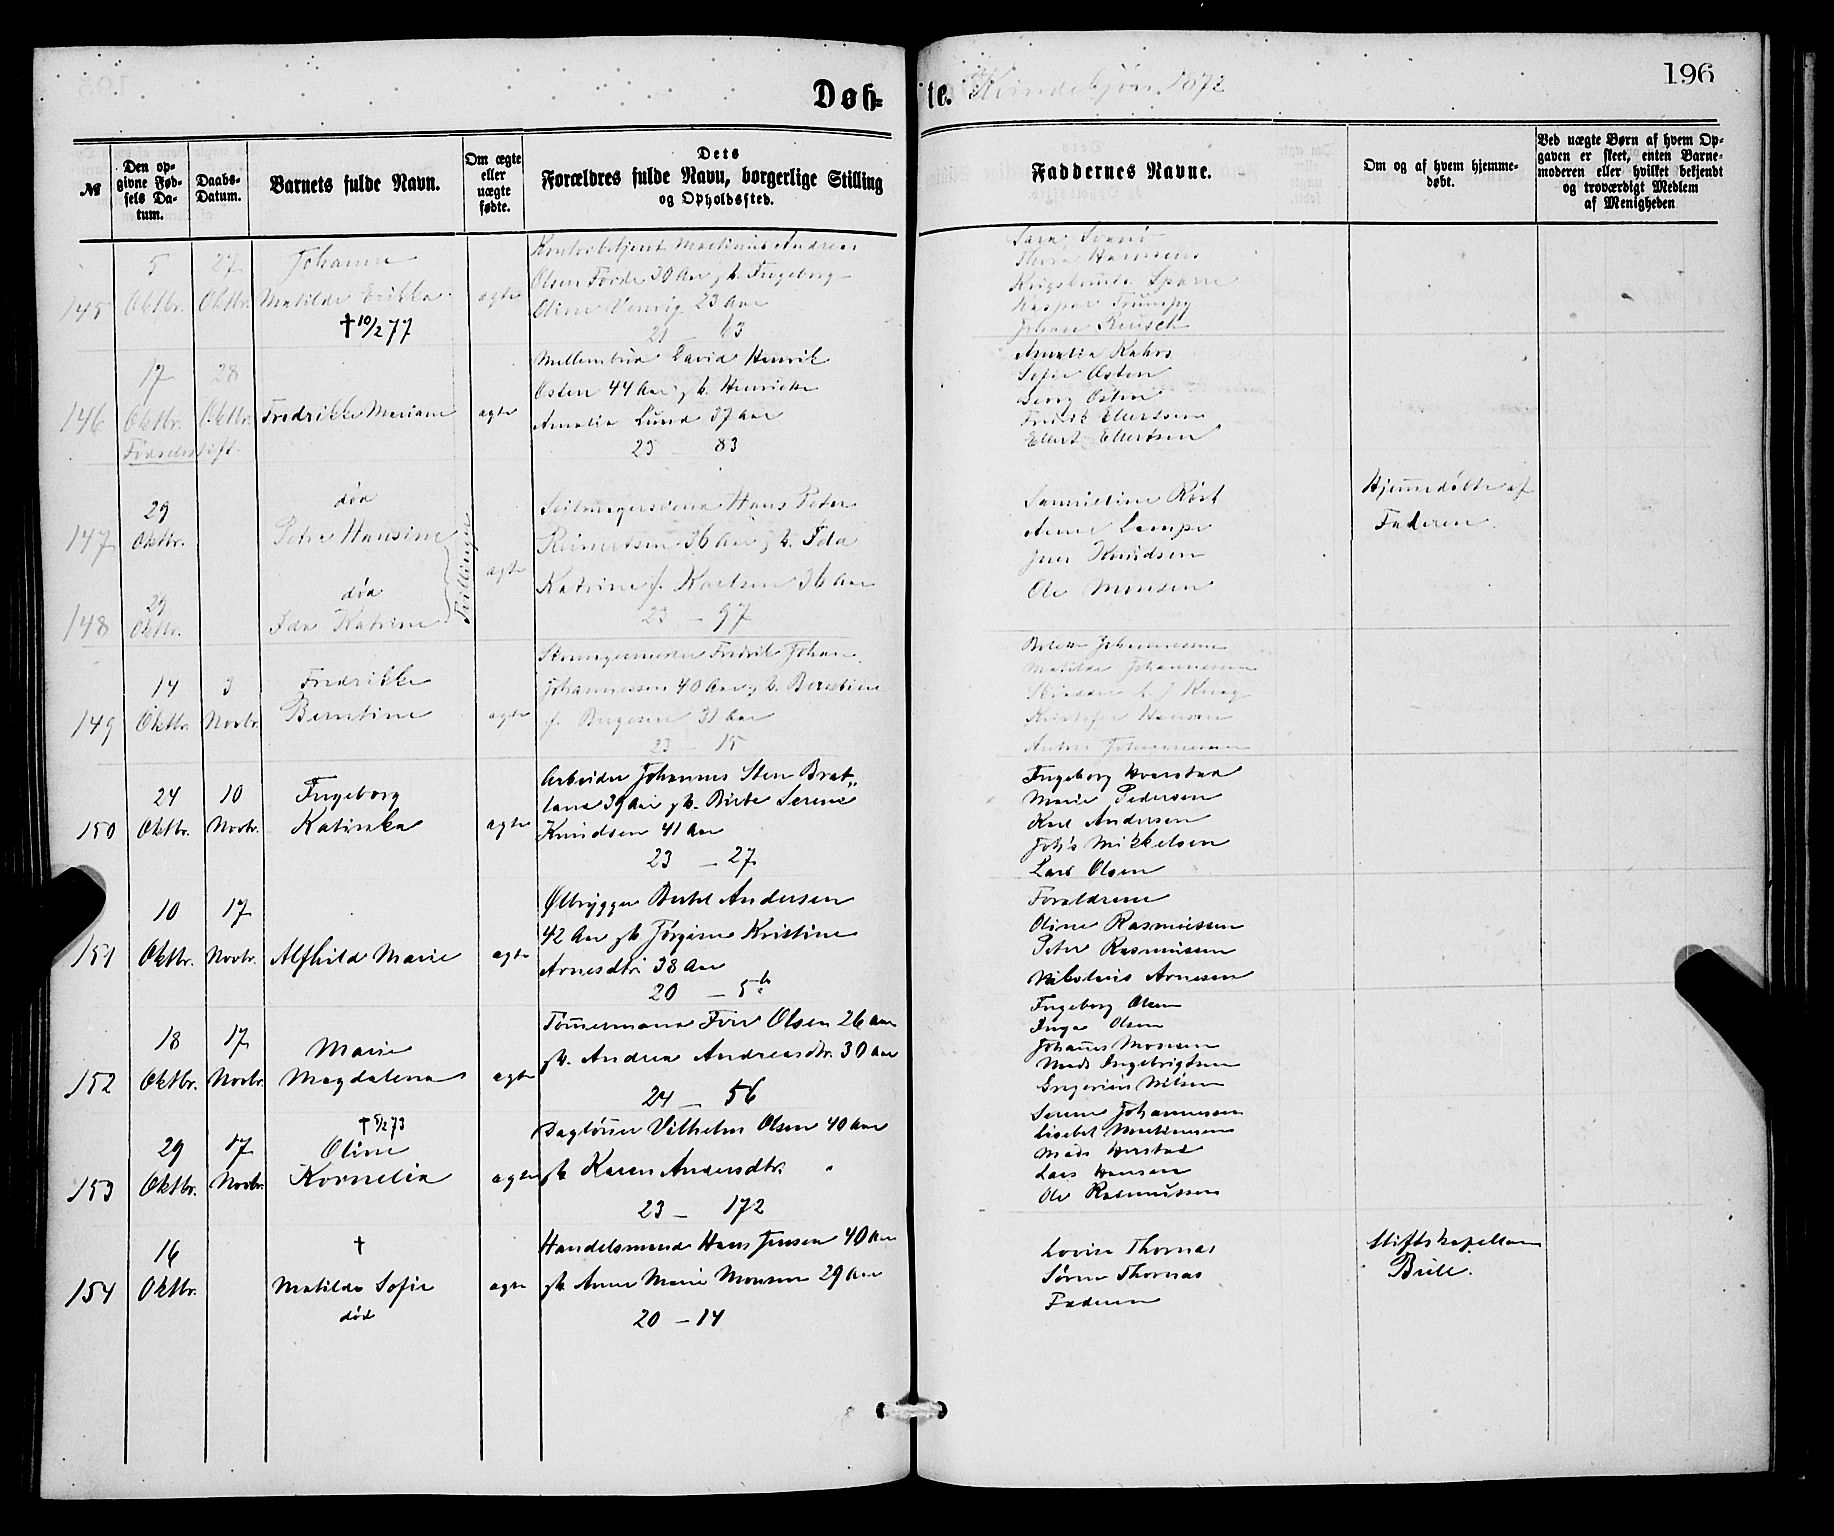 Døb-
te. Kvindekjøn. 1872
196
№
Den op-
givne Fød-
sels Da-
tum.
Daabs-
Datum.
Barnets fulde Navn.
Om ægte
eller
uægte
fødte.
Dets
Forældres fulde Navn, borgerlige Stilling
og Opholdssted.
Faddernes Navne.
Om og af hvem hjemme-
døbt.
Ved uægte Børn af hvem Op-
gaven er skeet, enten Barne-
moderen eller hvilket bekjendt
og troværdigt Medlem
af Menigheden
145
5
Oktbr.
27
Oktbr.
Johanne
Matilde Erikka
✝ 10/2 77
ægte
Martinius Andreas
Olsen Førde 30 Aar g h. Ingeborg
Oline 23 Aar
21 – 63
146
17
Oktbr.
Fødselsstift.
28
Oktbr.
Fredrikke Mariane
ægte
David Henrik
Osten 44 Aar g h. Henrikke
Amalia Lund 37 Aar
23 – 83
Amalia Kahrs
Sofie Osten
Georg Osten
Fredrik Ellertsen
Ellert Ellertsen
147
29
Oktbr.
død
Petra Hansine
Tvillinger
ægte
Seilmagersvend Hans Peter
Reinertsen 36 Aar g h. Ida
Katrine f. Karlsen 36 Aar
23 – 97
Anne Lampe
Jens Knudsen
Ole Monsen
Hjemmedøbte af
Faderen.
148
29
Oktbr.
død
Ida Katrine
149
14
Oktbr.
3
Novbr.
Fredrikke
Berntine
ægte
Fredrik Johan
Johannessen 40 Aar g h. Berntine
f. Børgesen 31 Aar
23 – 15
Johannessen
Matilde Johannessen
Kristofer Hansen
Anton Johannessen
150
24
Oktbr.
10
Novbr.
Ingeborg
Katinka
ægte
Arbeider Johannes Sten Brat-
land 39 Aar g h. Birte Serene
Knudsen 41 Aar
23 – 27
Ingeborg Hverstad
Marie Pedersen
Karl Andersen
Joh's Mikkelsen
Lars Olsen
151
10
Oktbr.
17
Novbr.
Alfhild Marie
ægte
Ølbrygger Bertel Andersen
42 Aar g h Jørgine Kristine
Arnesdtr 38 Aar
20 – 5 b
Forældrene
Oline Rasmussen
Peter Rasmussen
Nikolaus Arnesen
152
18
Oktbr.
17
Novbr.
Marie
Magdalena
ægte
Tømmermand Iver Olsen 26 Aar
g h. Andrea Andreasdtr. 30 Aar
24 – 56
Ingeborg Olsen
Inga Olsen
Johannes Monsen
Mads Ingebrigtsen
Gregorius Nilsen
153
29
Oktbr.
17
Novbr.
✝ 5/2 73
Oline
Kornelia
ægte
Dagløner Vilhelm Olsen 40 Aar
g h Karen Andersdtr. "
23 – 172
Serene Johannessen
Lisebet Martinussen
Mads Herstad
Lars Hansen
Ole Rasmussen
154
16
Oktbr.
✝
Matilda Sofie
død
ægte
Handelsmand Hans Jensen 40 Aar
g h Anne Marie Monsen 29 Aar
20 – 14
Lovise Thomas
Sørine Thomas
Faderen
Stiftskapellan
Brill.